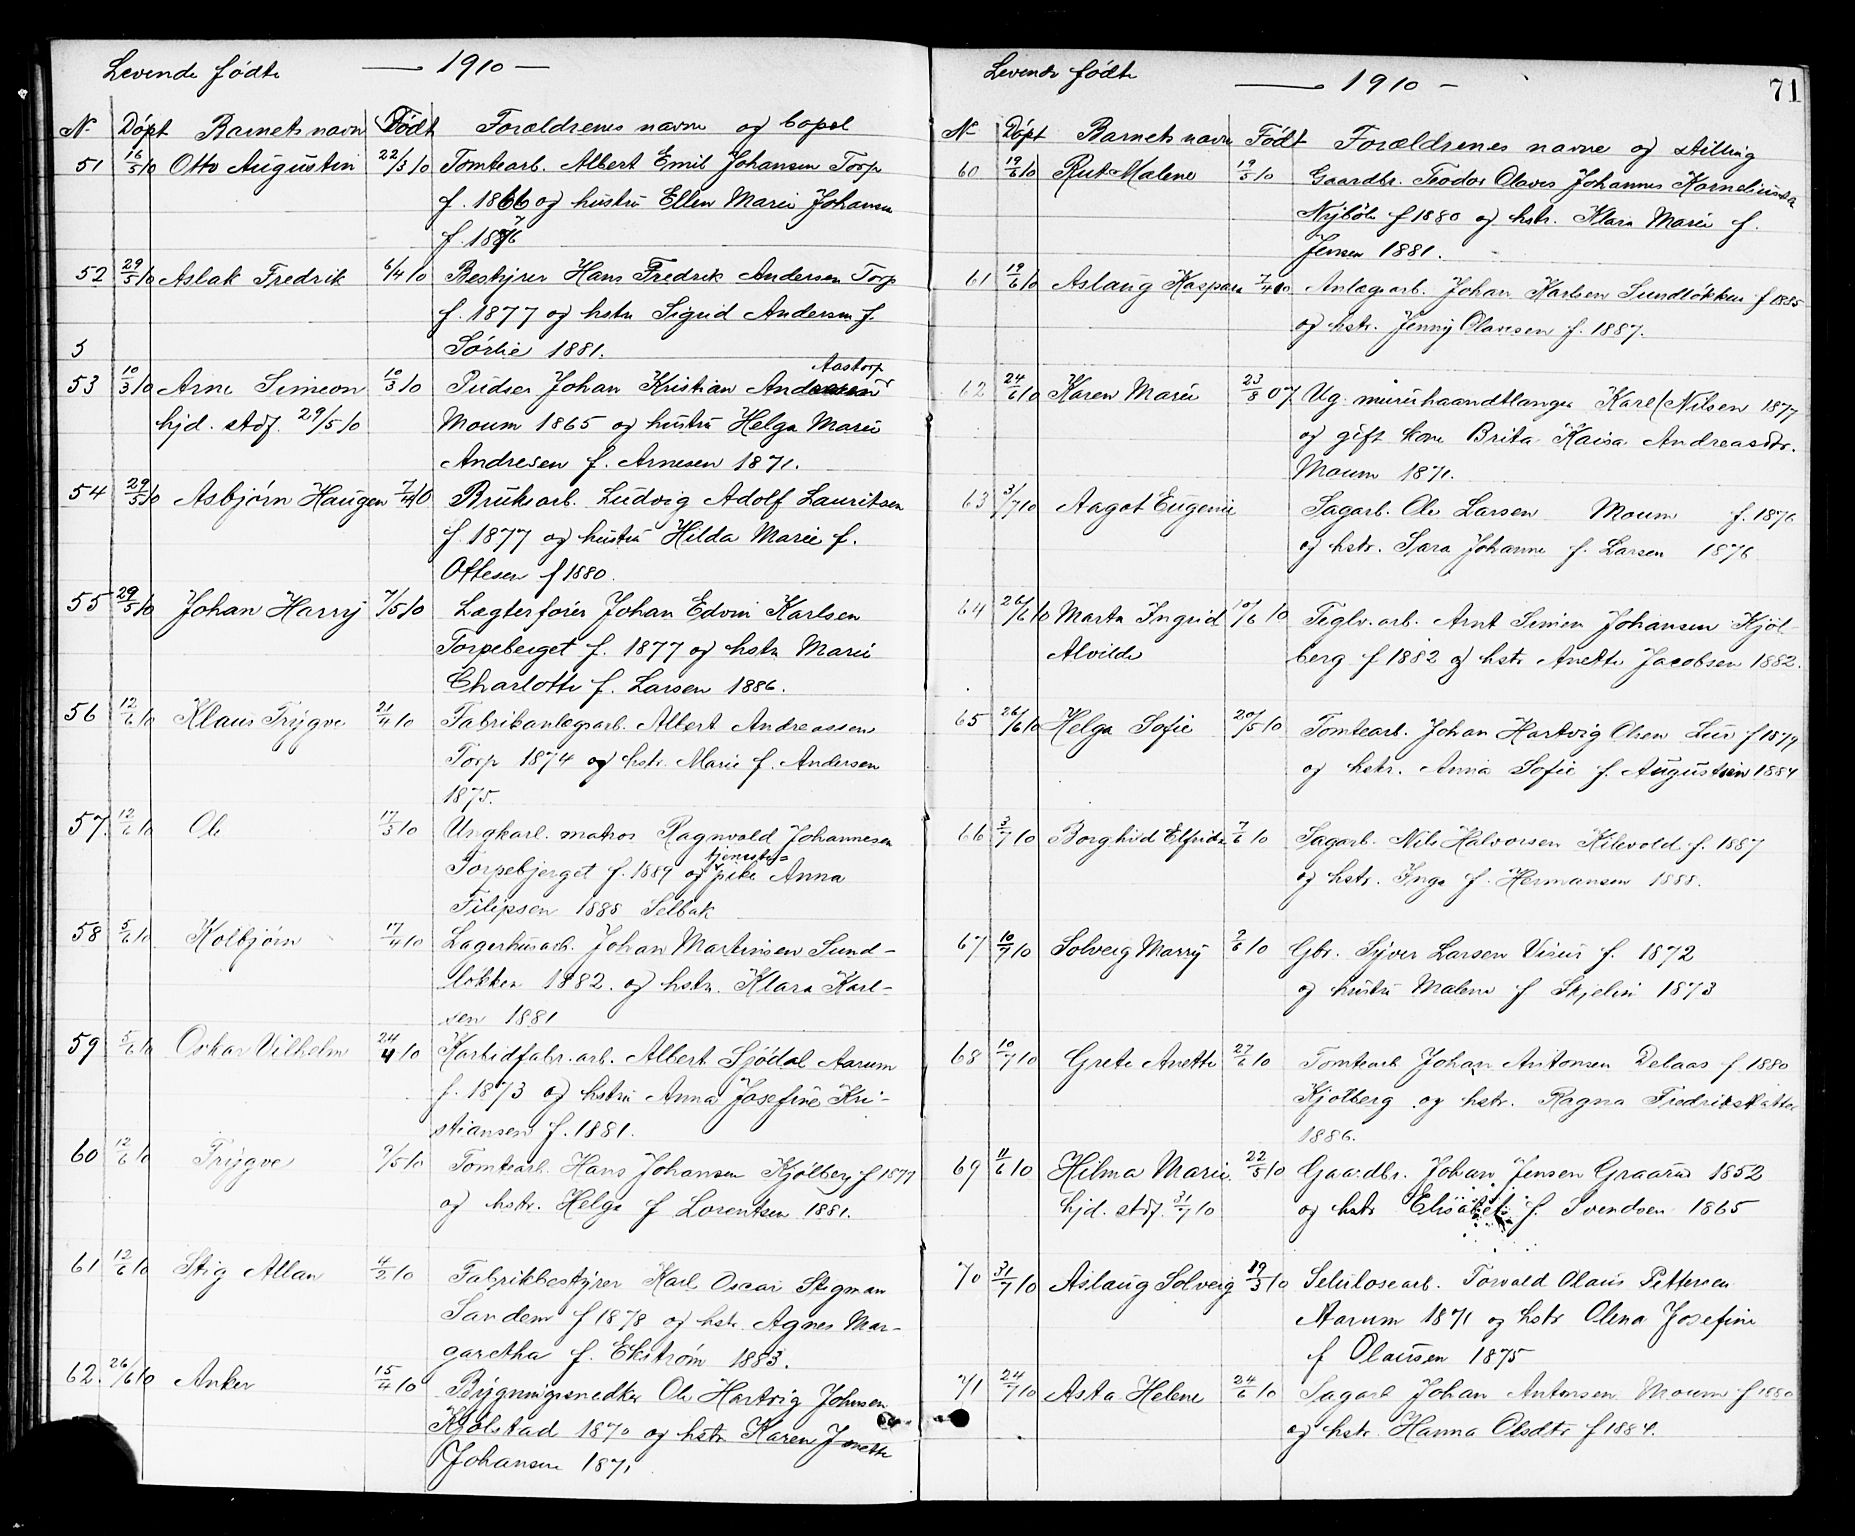 Levende fødte — 1910 —
No Døpt Barnets navn Født Forældrenes navne og bopæl
51 16/5 10 Otto Augustin 22/3 10 Tomtearb. Albert Emil Johansen Torp
f. 1866 og hustru Ellen Marie Johansen
f. 1876
52 29/5 10 Aslak Fredrik 6/4 10 Bestyrer Hans Fredrik Andersen Torp
f. 1877 og hstru Sigrid Andersen f.
Sørlie 1881.
5
53 10/3 10 Arne Simeon 10/3 10 Pudser Johan Kristian Aastorp
hjd. stdf. 29/5 10 Moum 1865 og hustru Helga Marie
Andresen f. Arnesen 1871.
54 29/5 10 Asbjørn Haugen 7/4 10 Bruksarb. Ludvig Adolf Lauritsen
f 1877 og hustru Hilda Marie f.
Ottesen f 1880.
55 29/5 10 Johan Harry 7/5 10 Lægterfører Johan Edvin Karlsen
Torpeberget f. 1877 og hstru Marie
Charlotte f. Larsen 1886.
56 12/6 10 Klaus Trygve 21/4 10 Fabrikanlægsarb. Albert Andreassen
Torp 1874 og hstr. Marie f. Andersen
1875.
57. 12/6 10 Ole 17/3 10 Ungkarl. matros Ragnvald Johannesen
Torpebjerget f. 1889 og tjeneste-pike Anna
Filipsen 1888 Selbak
58 5/6 10 Kolbjørn 17/4 10 Lagerhusarb. Johan Martinsen Sund-
løkken 1882. og hstru. Klara Karl-
sen 1881
59 5/6 10 Oskar Vilhelm 24/4 10 Karbidfabr.arb. Albert Sjødal Aarum
f. 1873 og hstru Anna Josefine Kri-
stiansen f. 1881.
60 12/6 10 Trygve 9/5 10 Tomtearb. Hans Johansen Kjølberg f 1877
og hstr. Helga f Lorentsen 1881.
61 12/6 10 Stig Allan 4/2 10 Fabrikbestyrer Karl Oscar Stigman
Sandem f 1878 og hstr. Agnes Mar-
garetha f. Ekstrøm 1883.
62. 26/6 10 Anker 15/4 10 Bygningssnedker Ole Hartvig Johnsen
Kjølstad 1870 og hstru Karen Jonette
Johansen 1871
Levende fødte — 1910 — 71
No Døpt Barnets navn Født Forældrenes navne og stilling
60 19/6 10 Rut Malene 19/5 10 Gaardbr. Teodor Olaves Johannes Kornelius
Nybøle f 1880 og hstr. Klara Marie f.
Jensen 1881.
61 19/6 10 Aslaug Kaspara 7/4 10 Anlægsarb. Johan Karlsen Sundløkken f 1885
og hstr. Jenny Olavesen f. 1887.
62 24/6 10 Karen Marie 23/8 07 Ug. murerhaandtlanger Karl Nilsen 1877
og gift kone Brita Kaisa Andreasdtr.
Moum 1871.
63 3/7 10 Aagot Eugenie Sagarb. Ole Larsen Moum f. 1876
og hstr. Sara Johanne f. Larsen 1876
64 26/6 10 Marta Ingrid 10/6 10 Teglv.arb. Arnt Simen Johansen Kjøl-
Alvilde berg f 1882 og hstr Anette Jacobsen 1882.
65 26/6 10 Helga Sofie 20/5 10 Tomtearb. Johan Hartvig Olsen Lur f 1879
og hstr. Anna Sofie f. Augustsen 1884
66 3/7 10 Borghild Elfrida 7/6 10 Sagarb. Nils Halvorsen Kilevold f. 1887
og hstr. Inga f. Hermansen 1888.
67 10/7 10 Solveig Marry 2/6 10 Gbr. Syver Larsen Visur f. 1872
og hustru Malene f Skjelin 1873
68 10/7 10 Grete Anette 27/6 10 Tomtearb Johan Antonsen Delaas f 1880
Kjølberg og hstr. Ragna Fredrikke
1886.
69 11/6 10 Hilma Marie 22/5 10 Gaardbr. Johan Jensen Graarud 1852
hjd. stdf. 31/7 10 og hstr Elisabet f. Svendsen 1865
70 31/7 10 Aslaug Solveig 19/3 10 Selulosearb. Torvald Olaus Pettersen
Aarum 1871 og hstr Olena Josefine
f Olaussen 1875
71 24/7 10 Asta Helene 24/6 10 Sagarb Johan Antonsen Moum f 1880
og hstr. Hanna Olsdtr f 1884.